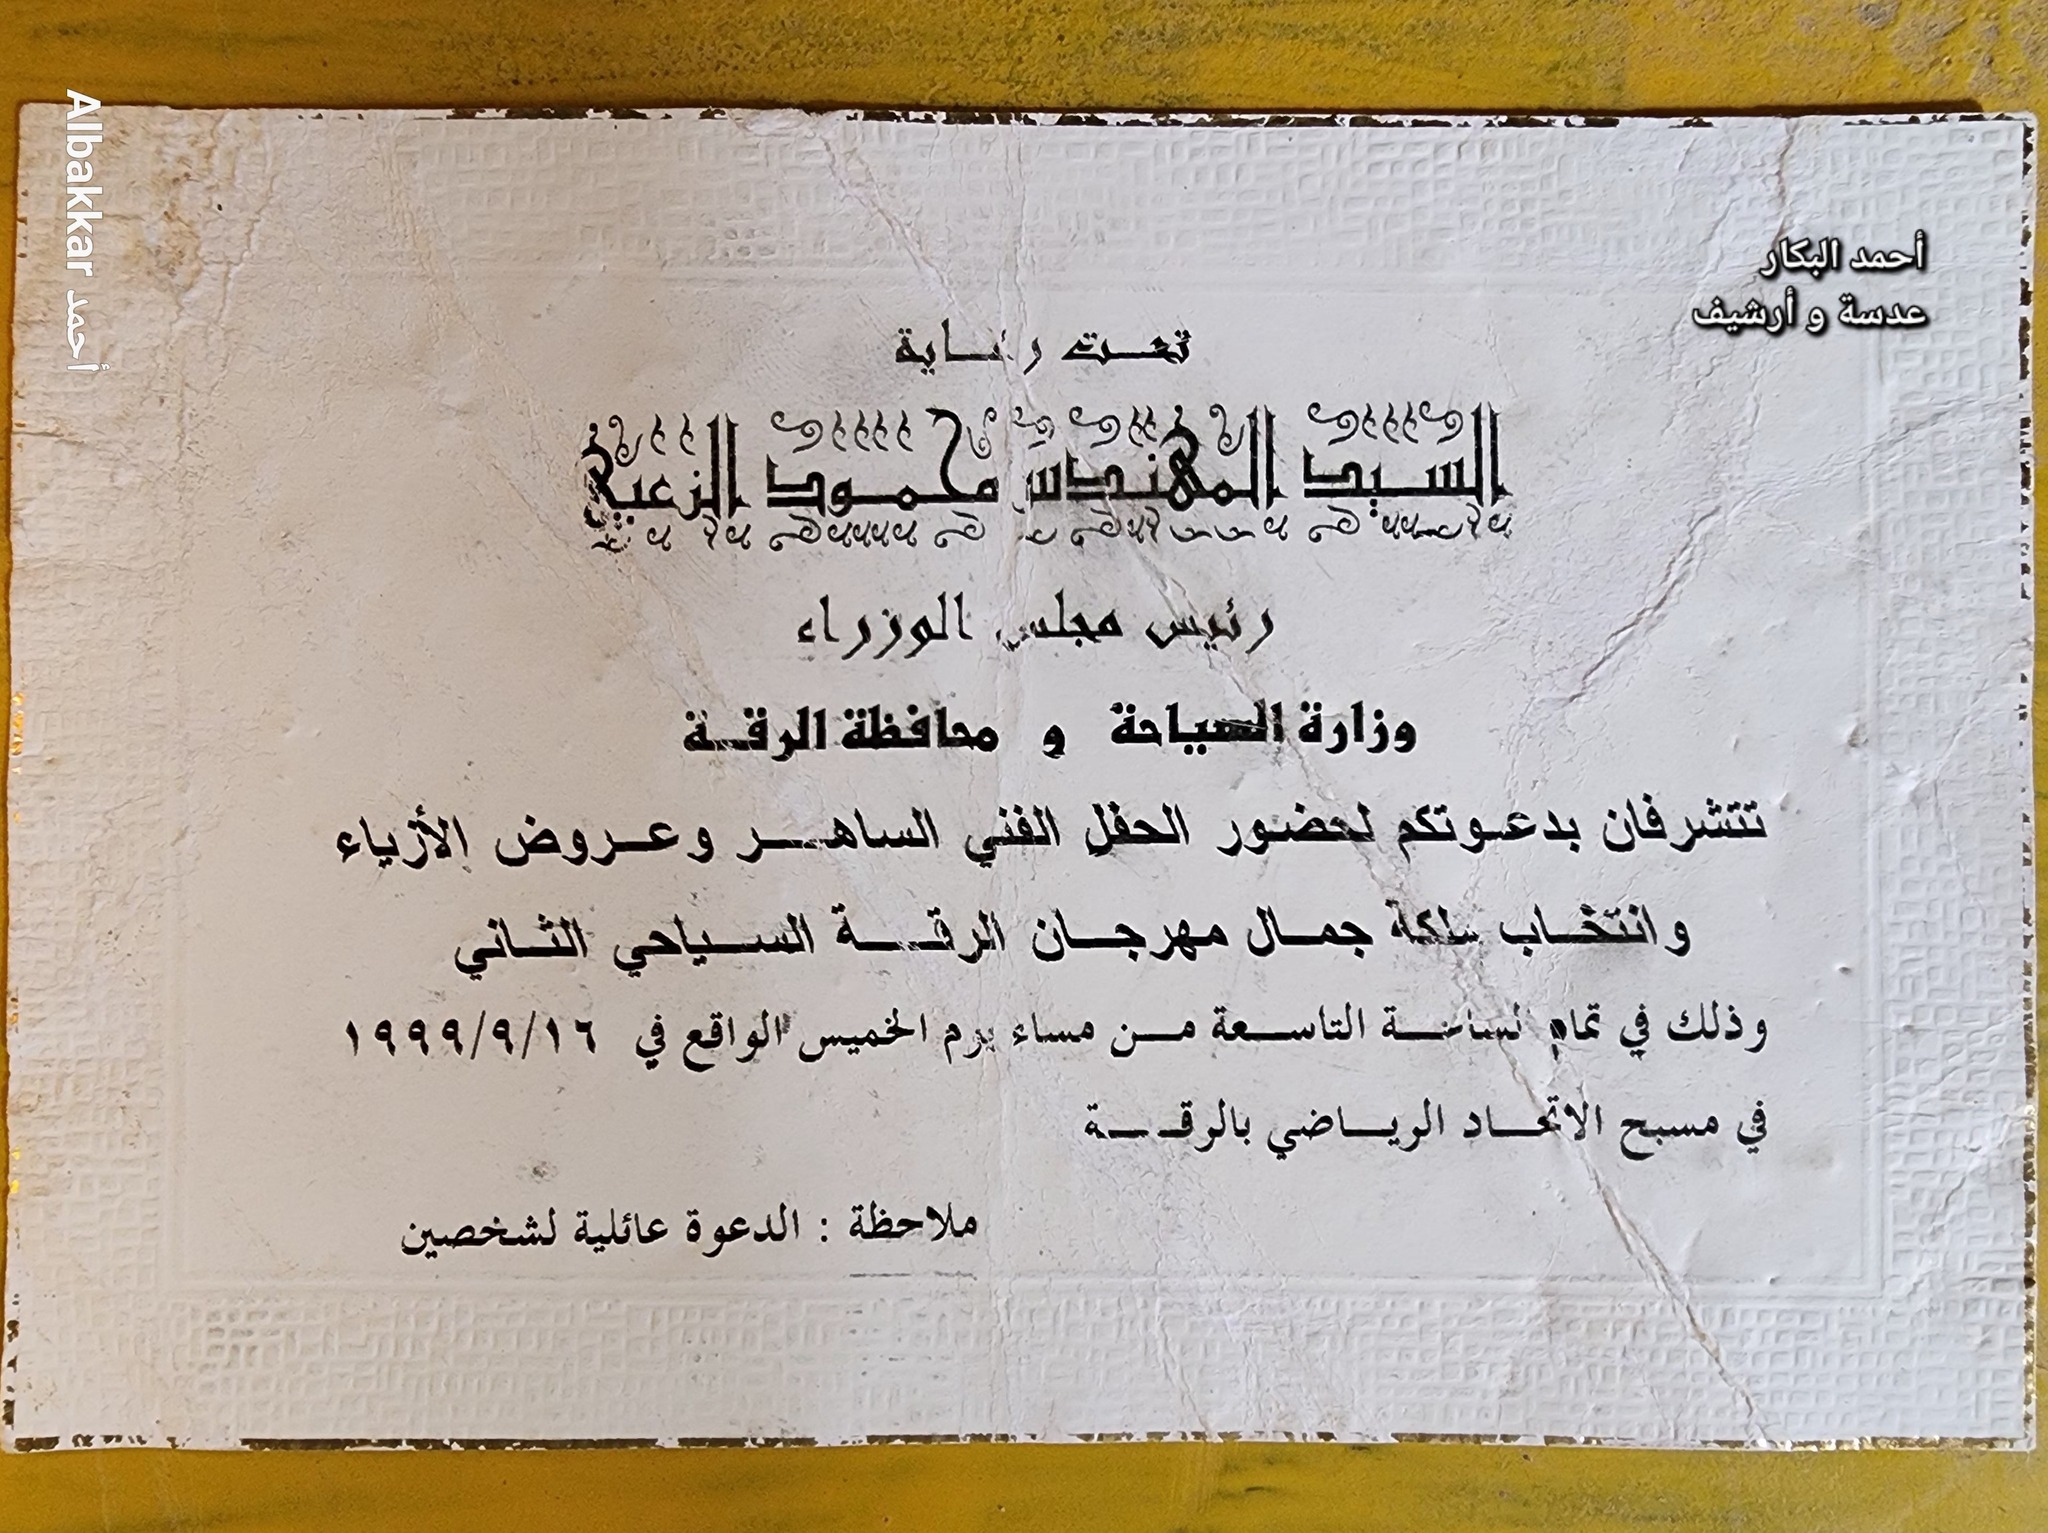 أحمد البكار
عدسة و أرشيف
Albakkar أحمد
تحت رعاية
السيد المهندس محمود الزعبي
رئيس مجلس الوزراء
وزارة السياحة و محافظة الرقة
تتشرفان بدعوتكم لحضور الحفل الفني الساهر وعروض الأزياء
وانتخاب ملكة جمال مهرجان الرقة السياحي الثاني
وذلك في تمام الساعة التاسعة من مساء يوم الخميس الواقع في ١٩٩٩/٩/١٦
في مسبح الاتحاد الرياضي بالرقة
ملاحظة : الدعوة عائلية لشخصين